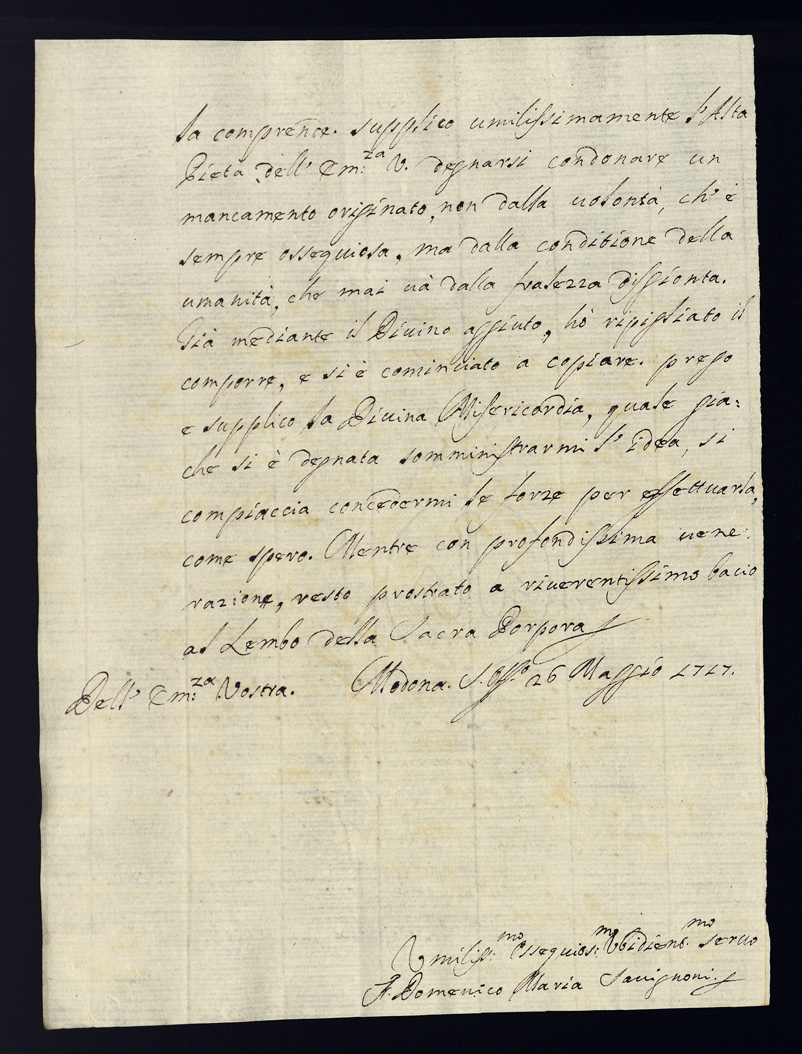 la comprende. supplico umilissimamente l'Alta
Pietà dell' Em:za V. degnarsi condonare un
mancamento originato, non dalla volontà, ch' è
sempre ossequiosa, ma dalla conditione della
umanità, che mai và dalla fralezza disgionta.
Già mediante il Divino aggiuto, hò ripigliato il
comporre, e si è cominciato a copiare. prego
e supplico la Divina Misericordia, quale gia:
che si è degnata somministrarmi l' idea, si
compiaccia concedermi le forze per effettuarla,
come spero. Mentre con profondissima vene:
razione, resto prostrato a riverentissimo bacio
al Lembo della Sacra Porpora
Dell' Em:za Vostra. Modona. S. Off.o 26 Maggio 1717.
Umiliss:mo Ossequios:mo Obidient:mo servo
F. Domenico Maria Savignoni.